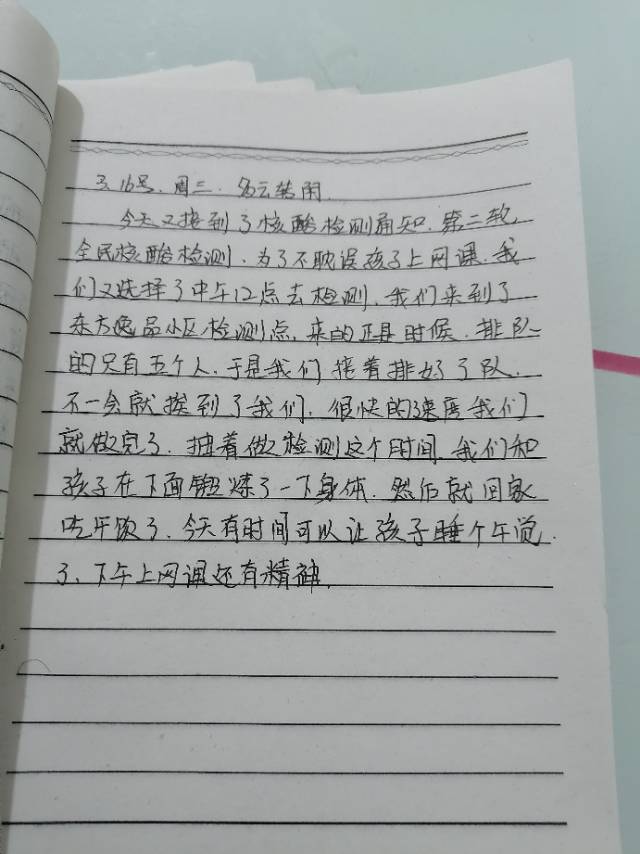 3.16号.周三.多云转阴.
今天又接到了核酸检测通知.第二轮
全民核酸检测.为了不耽误孩子上网课.我
们又选择了中午12点去检测.我们来到了
东方逸品小区检测点.来的正是时候.排队
的只有五个人.于是我们接着排好了队.
不一会就挨到了我们.很快的速度我们
就做完了.趁着做检测这个时间.我们和
孩子在下面锻炼了一下身体.然后就回家
吃午饭了.今天有时间可以让孩子睡个午觉.
了、下午上网课还有精神.